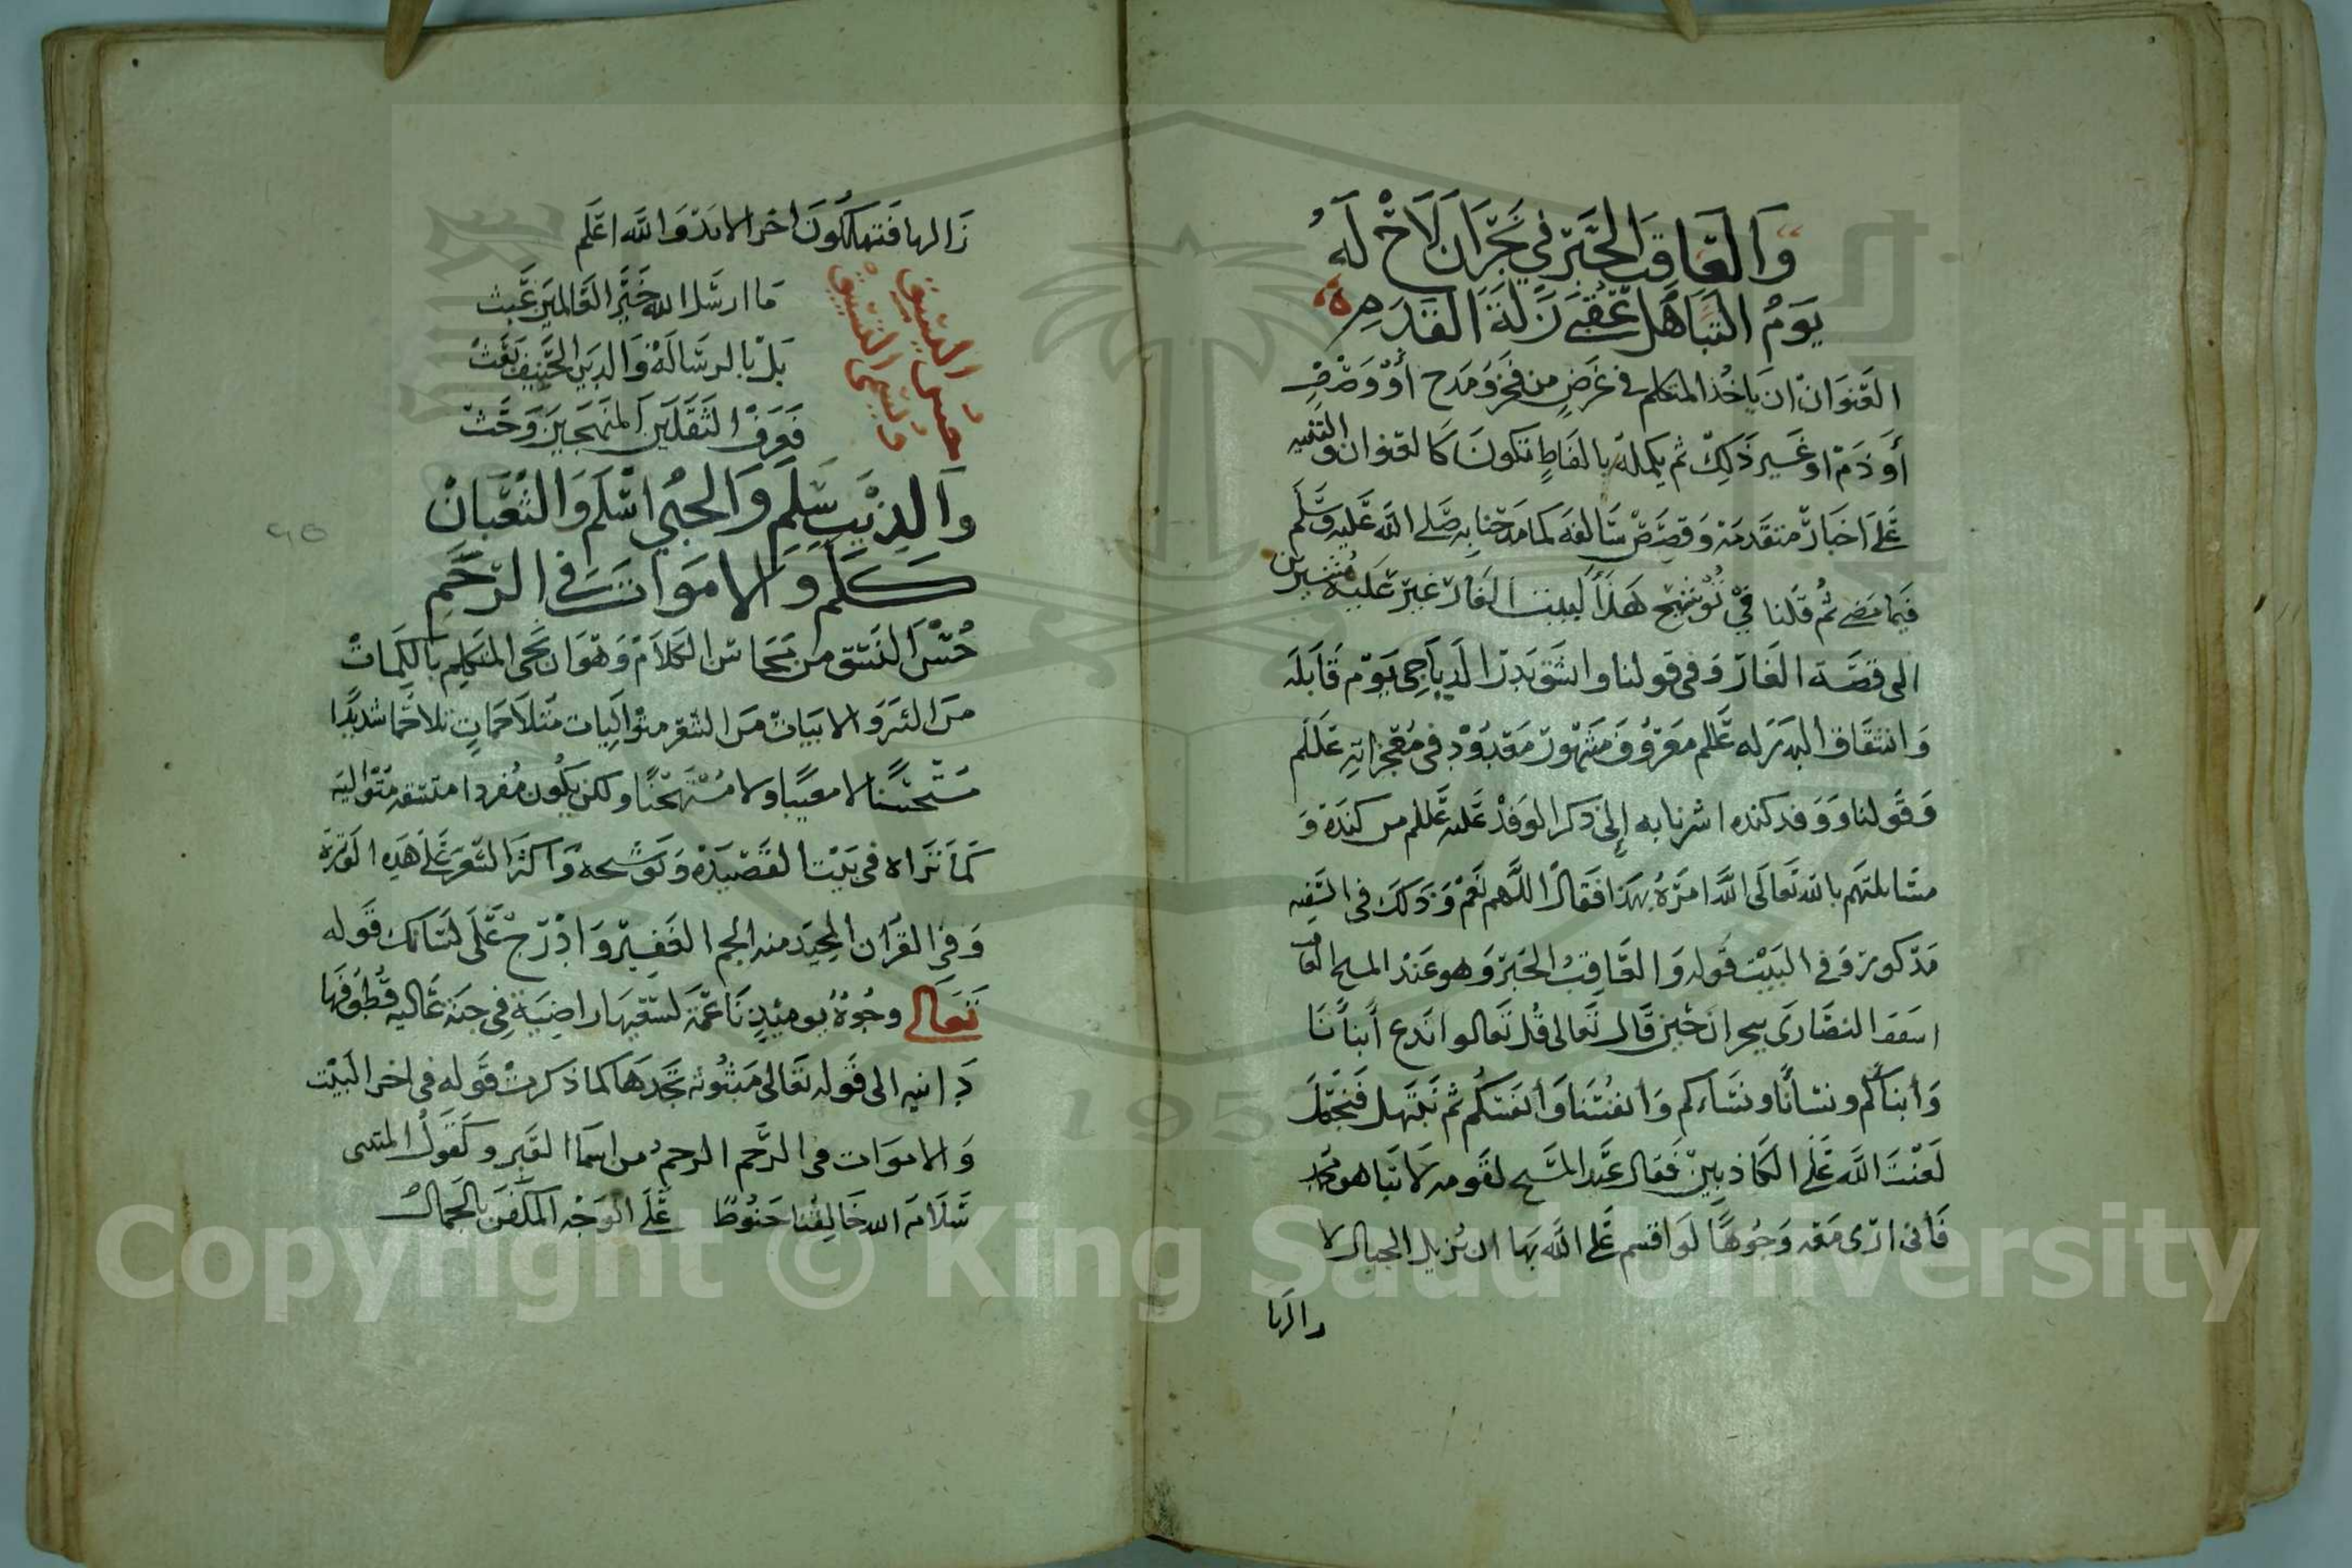 وَالعَاقِبُ الحَبْرُ فِي نَجْرَانَ لَاحَ لَهُ
يَوْمَ التَّبَاهُلِ عُقْبَى زَلَّةِ القَدَمِ ه
العنوان ان ياخذ المتكلم في غرض من فخر ومدح أو وصف
أو ذم او غير ذلك ثم يكمله بالفاظ تكون كالعنوان والتنبيه
على اخبار متقدمة وقصص سالفة كما مدحنا به صلى الله عليه وسلم
فيما مضى ثم قلنا في توشيح هذا البيت الغار غبر عليه مشيرين
الى قصة الغار وفي قولنا وانشق بدر الدياجي يوم قابله
وانشقاق البدر له عللم معروف مشهور معدود في معجزاته عللم
وقولنا ووفد كنده اشرنا به إلى ذكر الوفد عليه عللم من كندة و
مسايلتهم بالله تعالى الله امره بهذا فقال اللهم نعم وذلك في السيره
مذكور وفي البيت قوله والعاقب الحبر وهو عبد المسيح العاقب
اسقف النصارى بنجران حين قال تعالى قل تعالوا ندع أبنأنا
وأبناكم ونسأنا ونساءكم وانفسنا وأنفسكم ثم نبتهل فنجعل
لعنت الله على الكاذبين فقال عبد المسيح لقومه لا تباهلو محمد
فأنى ارى معه وجوها لو اقسم على الله بها ان يزيل الجبال لا
زالها
زالها فتهلكون اخر الابد والله اعلم
حسن النسق
وليس النسق
ما ارسل الله خير العالمين عبث
بل بالرسالة والدين الحنيف بعث
فعرف الثقلين المنهجين وحث
وَالذِيبُ سَلَّمَ وَالجِنِي اسْلَمَ وَالثُّعْبَانُ
كَلَّمَ وَالامْوَاتُ فِي الرَّجَمِ
حسن النسق من محاسن الكلام وهو ان يجى المتكلم بالكلمات
من النثر والابيات من الشعر متواليات متلاحمات تلاحما شديدا
مستحسنا لا معيبا ولا مستهجنا ولكن يكون مفردا متسقه متواليه
كما نراه في بيت القصيدة وتوشيحه واكثر الشعر على هذه الوتيرة
وفي القرآن المجيد منه الجم الغفير وادرج على لسانك قوله
تعالى وجوه يوميذ ناعمة لسعيها راضية في جنة عاليه قطوفها
دانيه الى قوله تعالى مبثوثه تجدها كما ذكرت قوله في اخر البيت
والاموات في الرجم الرجم من اسما القبر وكقول المتنبى
سلام الله خالقنا حنوط على الوجه المكفن بالجمال
٤٥
1957
Copyright © King Saud University